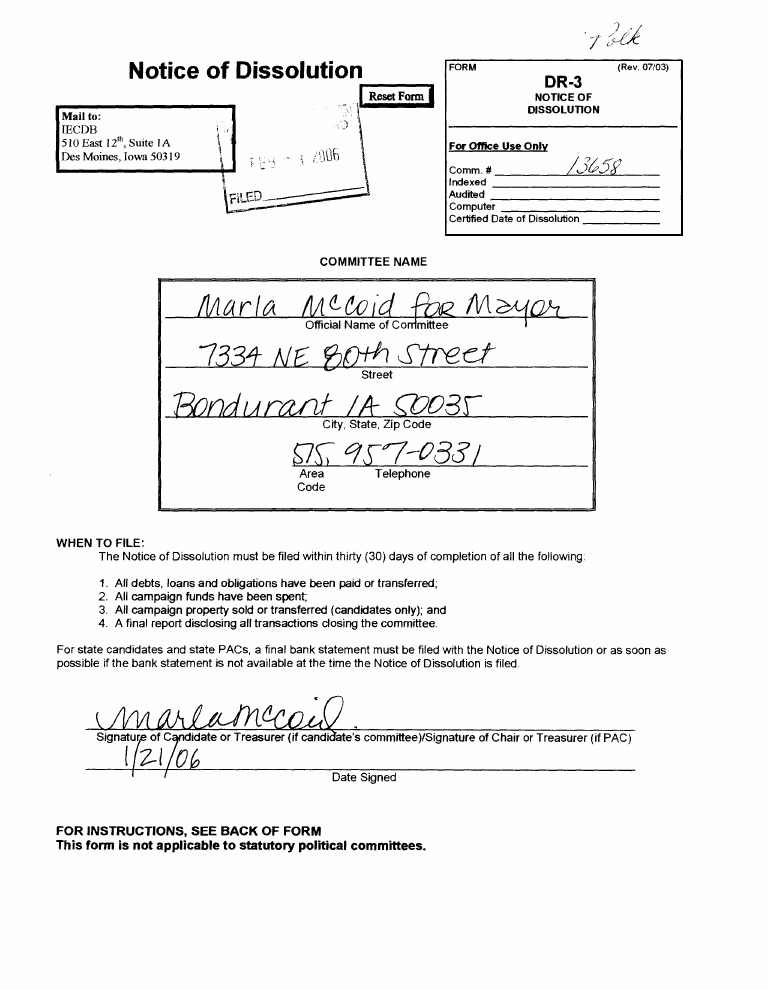 Polk
Notice of Dissolution
Reset Form
Mail to:
IECDB
510 East 12th, Suite 1A
Des Moines, Iowa 50319
FEB 2006
FILED
FORM (Rev. 07/03)
DR-3
NOTICE OF
DISSOLUTION
For Office Use Only
Comm. # 13658
Indexed
Audited
Computer
Certified Date of Dissolution
COMMITTEE NAME
Marla McCoid for Mayor
Official Name of Committee
7334 NE 80th Street
Street
Bondurant IA 50035
City, State, Zip Code
515, 957-0331
Area Telephone
Code
WHEN TO FILE:
The Notice of Dissolution must be filed within thirty (30) days of completion of all the following:
1. All debts, loans and obligations have been paid or transferred;
2. All campaign funds have been spent;
3. All campaign property sold or transferred (candidates only); and
4. A final report disclosing all transactions closing the committee.
For state candidates and state PACs, a final bank statement must be filed with the Notice of Dissolution or as soon as
possible if the bank statement is not available at the time the Notice of Dissolution is filed.
Marla McCoid
Signature of Candidate or Treasurer (if candidate's committee)/Signature of Chair or Treasurer (if PAC)
1/21/06
Date Signed
FOR INSTRUCTIONS, SEE BACK OF FORM
This form is not applicable to statutory political committees.